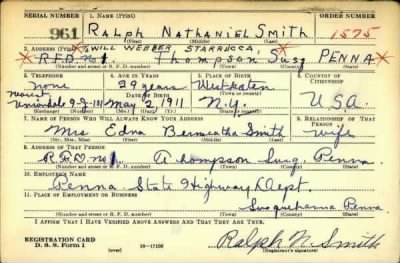 SERIAL NUMBER 1. NAME (Print) ORDER NUMBER
961 RALPH NATHANIEL SMITH 1575
(First) (Middle) (Last)
2. ADDRESS (Print) % WILL WEBBER STARRUCCA,
R.F.D. No 1. Thompson, Susq PENNA
(Number and street or R. F. D. number) (Town) (County) (State)
3. TELEPHONE 4. AGE IN YEARS 5. PLACE OF BIRTH 6. COUNTRY OF CITIZENSHIP
None 29 years
DATE OF BIRTH
Uniondale 9-2-111 May 2, 1911 N.Y. U.S.A.
(Exchange) (Number) (Mo.) (Day) (Yr.) (State or country)
7. NAME OF PERSON WHO WILL ALWAYS KNOW YOUR ADDRESS 8. RELATIONSHIP OF THAT PERSON
Mrs Edna Smith wife
(Mr., Mrs., Miss) (First) (Middle) (Last)
9. ADDRESS OF THAT PERSON
R.F.D. No 1. Thompson Susq. Penna.
(Number and street or R. F. D. number) (Town) (County) (State)
10. EMPLOYER'S NAME
Penna State Highway Dept.
11. PLACE OF EMPLOYMENT OR BUSINESS
Susquehanna Penna
(Number and street or R. F. D. number) (Town) (County) (State)
I AFFIRM THAT I HAVE VERIFIED ABOVE ANSWERS AND THAT THEY ARE TRUE.
REGISTRATION CARD
D. S. S. Form 1 16-17105 Ralph N. Smith
(Registrant's signature)